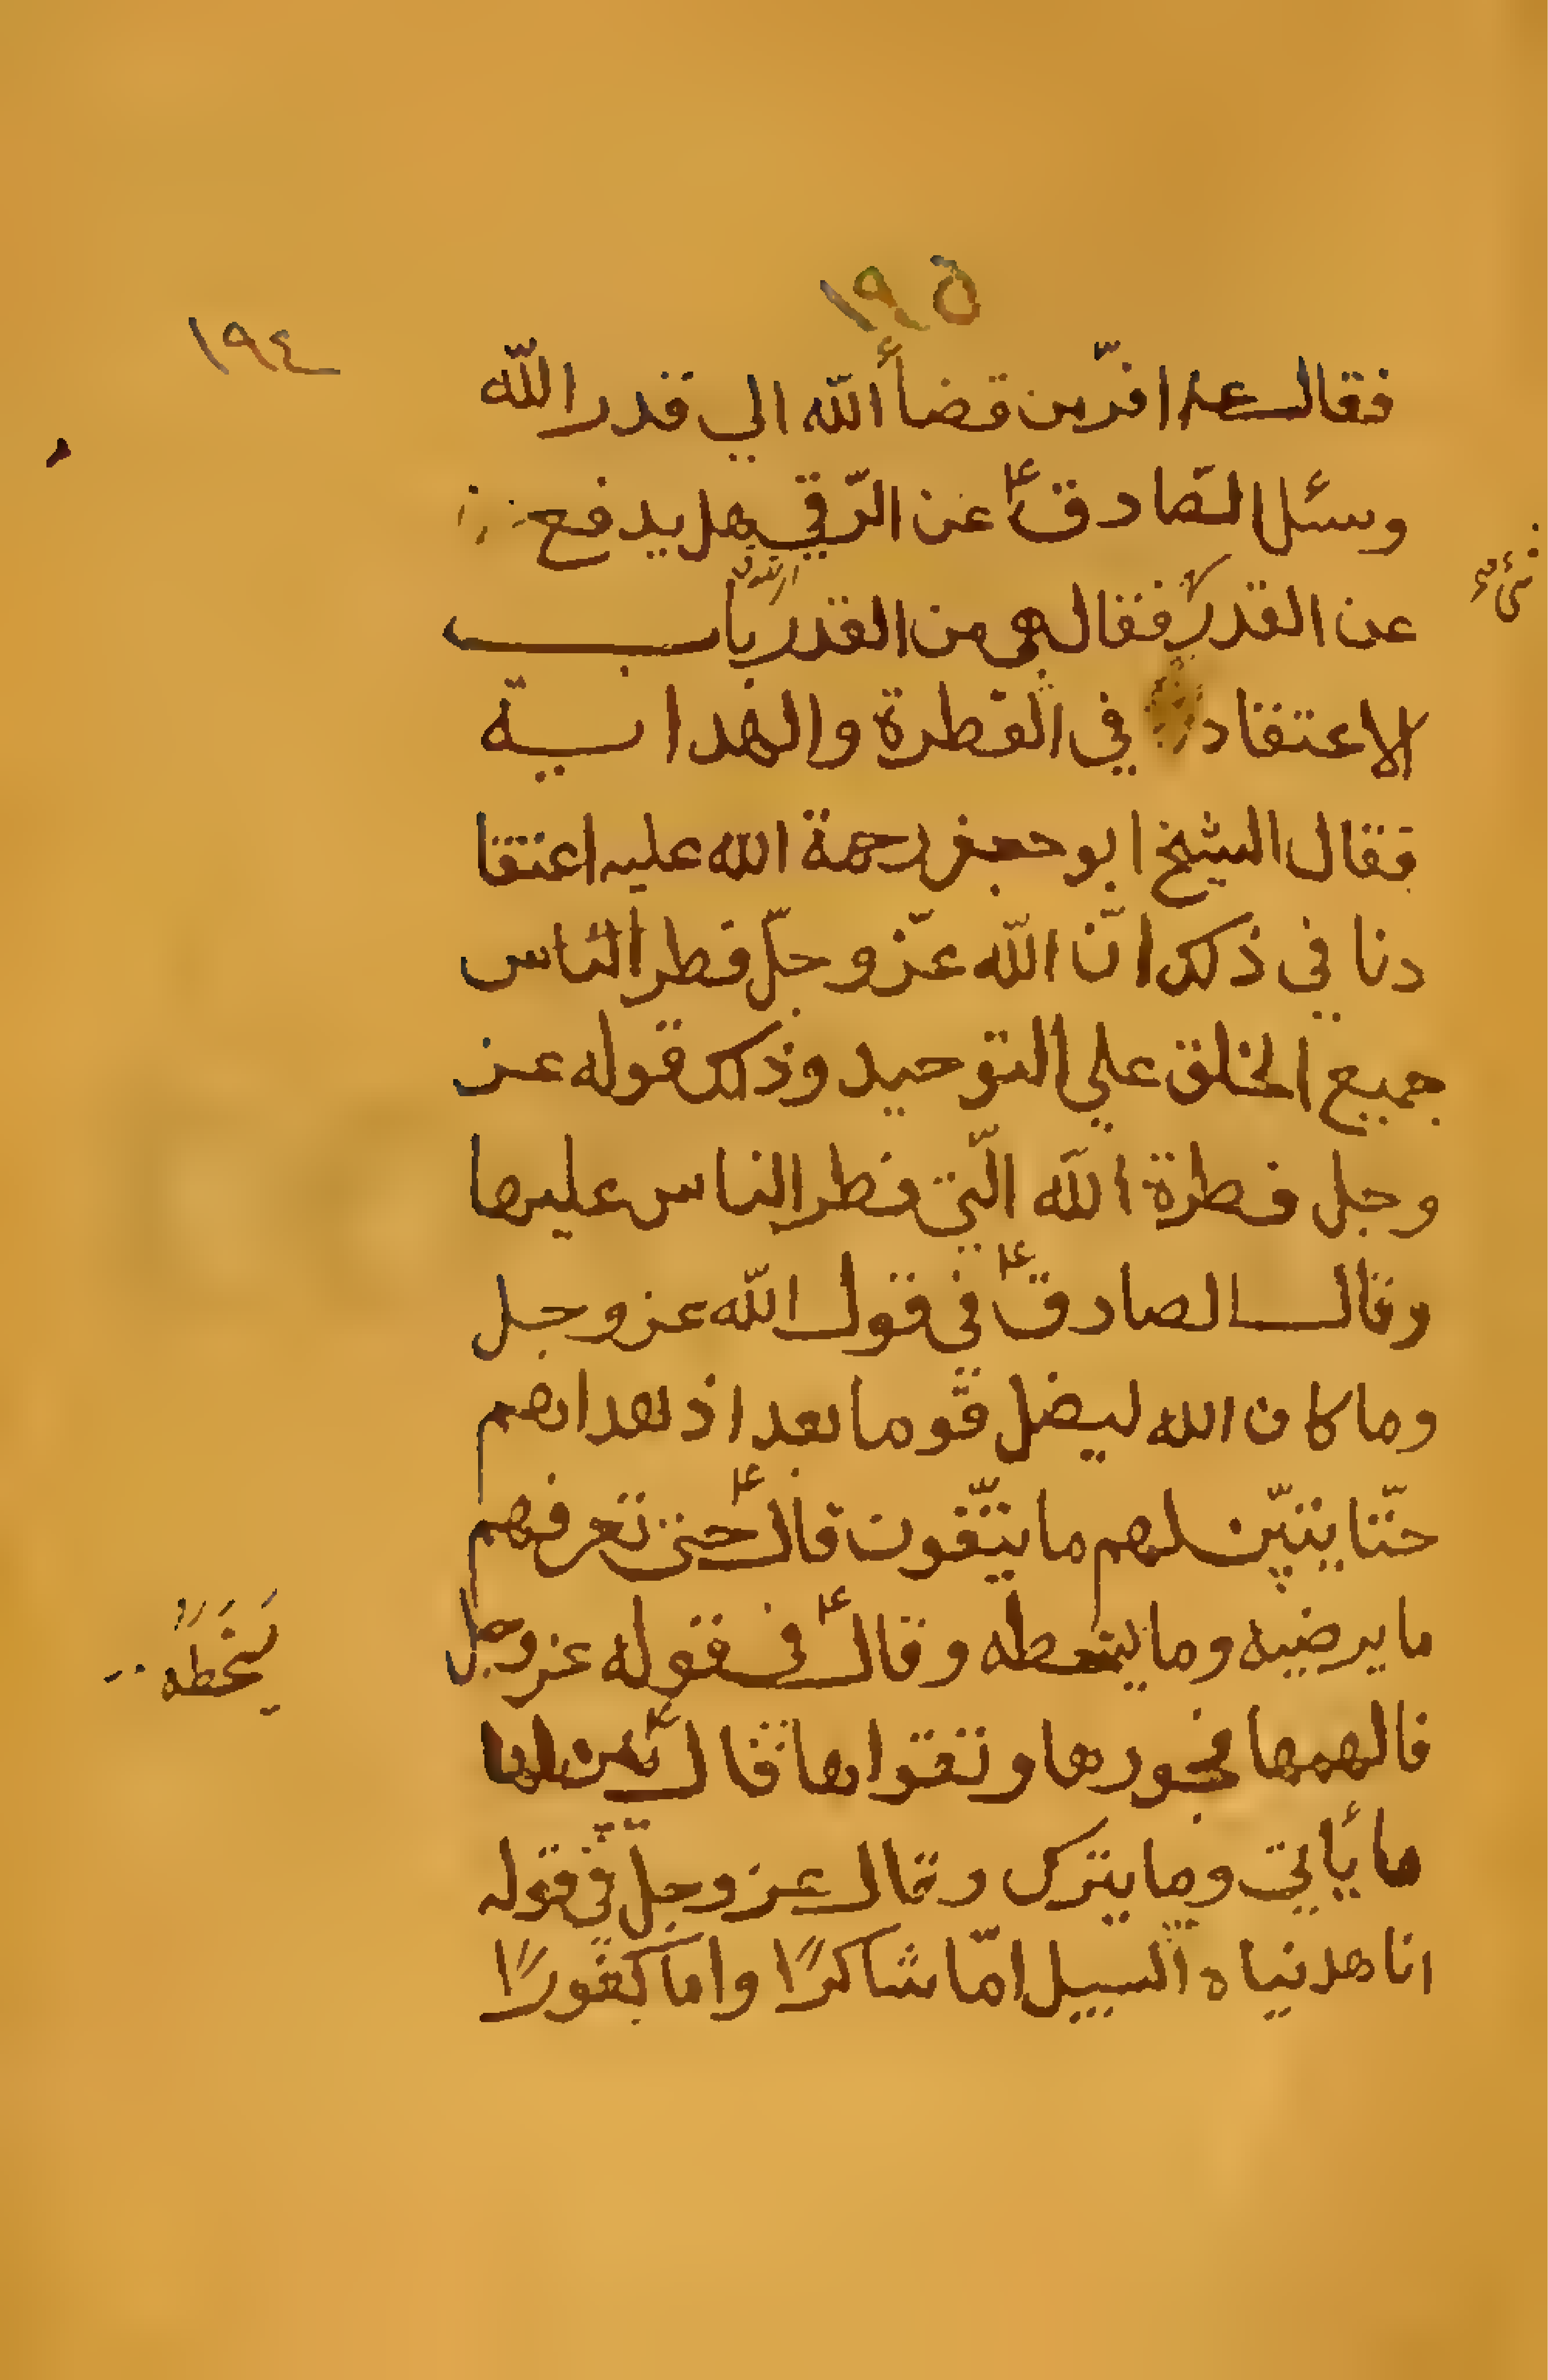 ١٩٥
١٩٤
فقال ع افرّ من قضأ الله الي قدر الله
وسئل الصّادق ع عن الرّقي هل يدفع
عن القدر فقال هي من القدر باب
الاعتقاد في الفطرة والهداية
فقال الشيخ ابو جعفر رحمة الله عليه اعتقا
دنا في ذلك انّ الله عزّ وجلّ فطر النّاس
جميع الخلق علي التوحيد وذلك قوله عز
وجل فطرة الله الّتي فطر الناس عليها
وقال الصادق ع في قول الله عز وجل
وما كان الله ليضل قوما بعد اذ هداهم
حتّا يتبيّن لهم ما يتّقون قال ع حتى تعرفهم
ما يرضيه وما يسخطه وقال ع في قوله عز وجل
يَسْخَطه
فالهمها فجورها وتقواها قال ع بين لها
ما يأتي وما يترك وقال عز وجلّ في قوله
انا هديناه السبيل امّا شاكرًا واما كفورًا